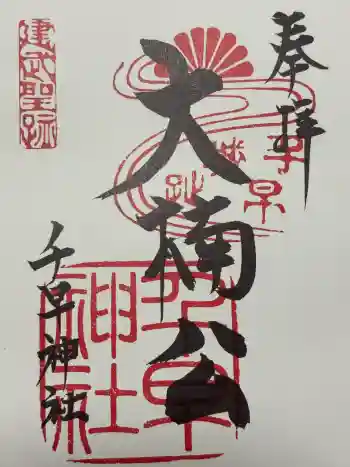 奉拝
大楠公
千早神社
建武聖跡
千早城趾
千早神社